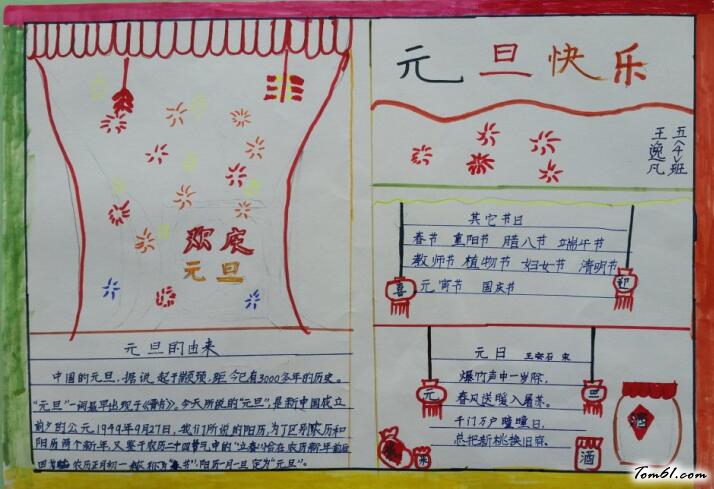 元旦快乐
五<4>班
王逸凡
欢庆
元旦
其它节日
春节 重阳节 腊八节 端午节
教师节 植物节 妇女节 清明节
元宵节 国庆节
喜
迎
元旦的由来
中国的元旦,据说起于颛顼,距今已有3000多年的历史。
“元旦”一词最早出现于《晋书》。今天所说的“元旦”,是新中国成立
前夕的公元1949年9月27日,我们所说的阳历,为了区分农历和
阳历两个新年,又鉴于农历二十四节气中的“立春”恰在农历新年前后
农历正月初一 称为“春节”,阳历一月一日定为“元旦”。
元日 王安石 宋
爆竹声中一岁除,
春风送暖入屠苏。
千门万户曈曈日,
总把新桃换旧符。
元
旦
米
酒
酒
Tom61.com